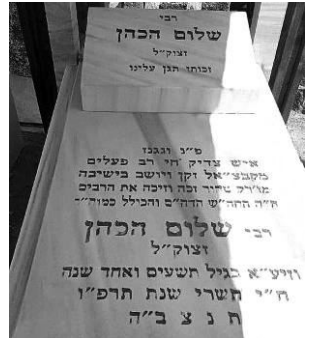 רבי
שלום הכהן
זצוק"ל
זכותו תגן עלינו
פ"נ ונגנז
איש צדיק חי רב פעלים
מקבצאל זקן ויושב בישיבה
טהור זכה וזיכה את הרבים
והכולל
רבי שלום הכהן
זצוק"ל
וזיע"א בגיל תשעים ואחד שנה
ח"י תשרי שנת תרפ"ו
ת נ צ ב"ה